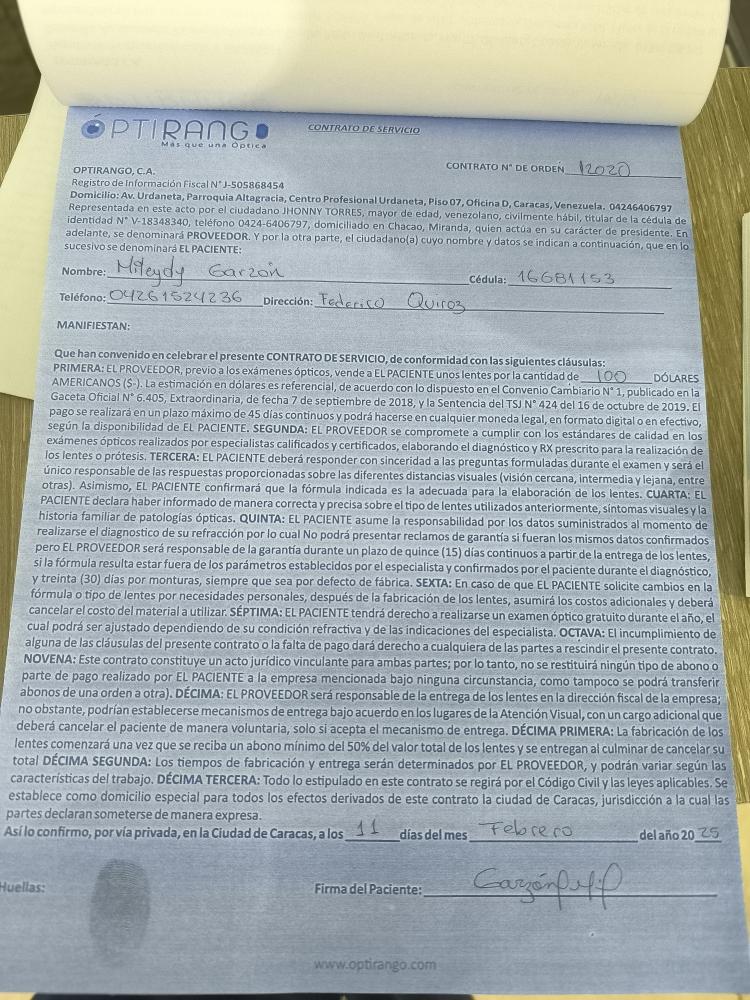 ÓPTIRANGO
Más que una Óptica
CONTRATO DE SERVICIO
CONTRATO N° DE ORDEN 12020
OPTIRANGO, C.A.
Registro de Información Fiscal N° J-505868454
Domicilio: Av. Urdaneta, Parroquia Altagracia, Centro Profesional Urdaneta, Piso 07, Oficina D, Caracas, Venezuela. 04246406797
Representada en este acto por el ciudadano JHONNY TORRES, mayor de edad, venezolano, civilmente hábil, titular de la cédula de
identidad N° V-18348340, teléfono 0424-6406797, domiciliado en Chacao, Miranda, quien actúa en su carácter de presidente. En
adelante, se denominará PROVEEDOR. Y por la otra parte, el ciudadano(a) cuyo nombre y datos se indican a continuación, que en lo
sucesivo se denominará EL PACIENTE:
Nombre: Mileydy Garzón Cédula: 16681153
Teléfono: 04261524236 Dirección: Federico Quiroz
MANIFIESTAN:
Que han convenido en celebrar el presente CONTRATO DE SERVICIO, de conformidad con las siguientes cláusulas:
PRIMERA: EL PROVEEDOR, previo a los exámenes ópticos, vende a EL PACIENTE unos lentes por la cantidad de 100 DÓLARES
AMERICANOS ($-). La estimación en dólares es referencial, de acuerdo con lo dispuesto en el Convenio Cambiario N° 1, publicado en la
Gaceta Oficial N° 6.405, Extraordinaria, de fecha 7 de septiembre de 2018, y la Sentencia del TSJ N° 424 del 16 de octubre de 2019. El
pago se realizará en un plazo máximo de 45 días continuos y podrá hacerse en cualquier moneda legal, en formato digital o en efectivo,
según la disponibilidad de EL PACIENTE. SEGUNDA: EL PROVEEDOR se compromete a cumplir con los estándares de calidad en los
exámenes ópticos realizados por especialistas calificados y certificados, elaborando el diagnóstico y RX prescrito para la realización de
los lentes o prótesis. TERCERA: EL PACIENTE deberá responder con sinceridad a las preguntas formuladas durante el examen y será el
único responsable de las respuestas proporcionadas sobre las diferentes distancias visuales (visión cercana, intermedia y lejana, entre
otras). Asimismo, EL PACIENTE confirmará que la fórmula indicada es la adecuada para la elaboración de los lentes. CUARTA: EL
PACIENTE declara haber informado de manera correcta y precisa sobre el tipo de lentes utilizados anteriormente, síntomas visuales y la
historia familiar de patologías ópticas. QUINTA: EL PACIENTE asume la responsabilidad por los datos suministrados al momento de
realizarse el diagnostico de su refracción por lo cual No podrá presentar reclamos de garantía si fueran los mismos datos confirmados
pero EL PROVEEDOR será responsable de la garantía durante un plazo de quince (15) días continuos a partir de la entrega de los lentes,
si la fórmula resulta estar fuera de los parámetros establecidos por el especialista y confirmados por el paciente durante el diagnóstico,
y treinta (30) días por monturas, siempre que sea por defecto de fábrica. SEXTA: En caso de que EL PACIENTE solicite cambios en la
fórmula o tipo de lentes por necesidades personales, después de la fabricación de los lentes, asumirá los costos adicionales y deberá
cancelar el costo del material a utilizar. SÉPTIMA: EL PACIENTE tendrá derecho a realizarse un examen óptico gratuito durante el año, el
cual podrá ser ajustado dependiendo de su condición refractiva y de las indicaciones del especialista. OCTAVA: El incumplimiento de
alguna de las cláusulas del presente contrato o la falta de pago dará derecho a cualquiera de las partes a rescindir el presente contrato.
NOVENA: Este contrato constituye un acto jurídico vinculante para ambas partes; por lo tanto, no se restituirá ningún tipo de abono o
parte de pago realizado por EL PACIENTE a la empresa mencionada bajo ninguna circunstancia, como tampoco se podrá transferir
abonos de una orden a otra). DÉCIMA: EL PROVEEDOR será responsable de la entrega de los lentes en la dirección fiscal de la empresa;
no obstante, podrían establecerse mecanismos de entrega bajo acuerdo en los lugares de la Atención Visual, con un cargo adicional que
deberá cancelar el paciente de manera voluntaria, solo si acepta el mecanismo de entrega. DÉCIMA PRIMERA: La fabricación de los
lentes comenzará una vez que se reciba un abono mínimo del 50% del valor total de los lentes y se entregan al culminar de cancelar su
total DÉCIMA SEGUNDA: Los tiempos de fabricación y entrega serán determinados por EL PROVEEDOR, y podrán variar según las
características del trabajo. DÉCIMA TERCERA: Todo lo estipulado en este contrato se regirá por el Código Civil y las leyes aplicables. Se
establece como domicilio especial para todos los efectos derivados de este contrato la ciudad de Caracas, jurisdicción a la cual las
partes declaran someterse de manera expresa.
Así lo confirmo, por vía privada, en la Ciudad de Caracas, a los 11 días del mes Febrero del año 2025
Huellas: Firma del Paciente: Garzón
www.optirango.com